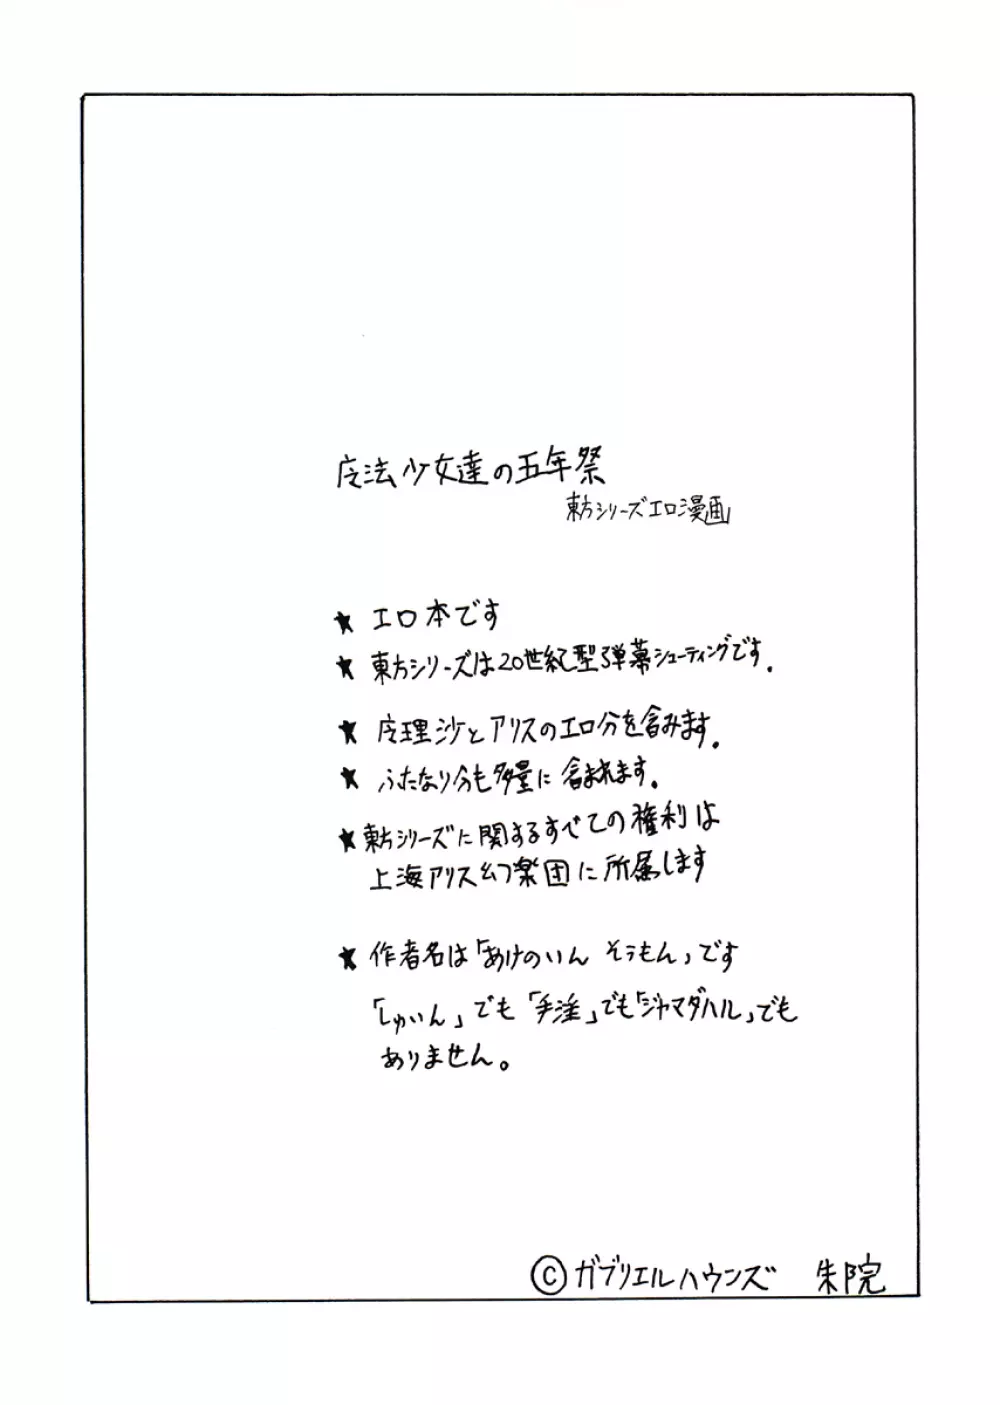 魔法少女達の五年祭
東方シリーズエロ漫画
★ エロ本です
★ 東方シリーズは20世紀型弾幕シューティングです。
★ 魔理沙とアリスのエロ分を含みます。
★ ふたなり分も多量に含まれます。
★ 東方シリーズに関するすべての権利は
上海アリス幻樂団に所属します
★ 作者名は「あけのいん そうもん」です
「しゅいん」でも「手淫」でも「ジャマダハル」でも
ありません。
©ガブリエルハウンズ 朱院